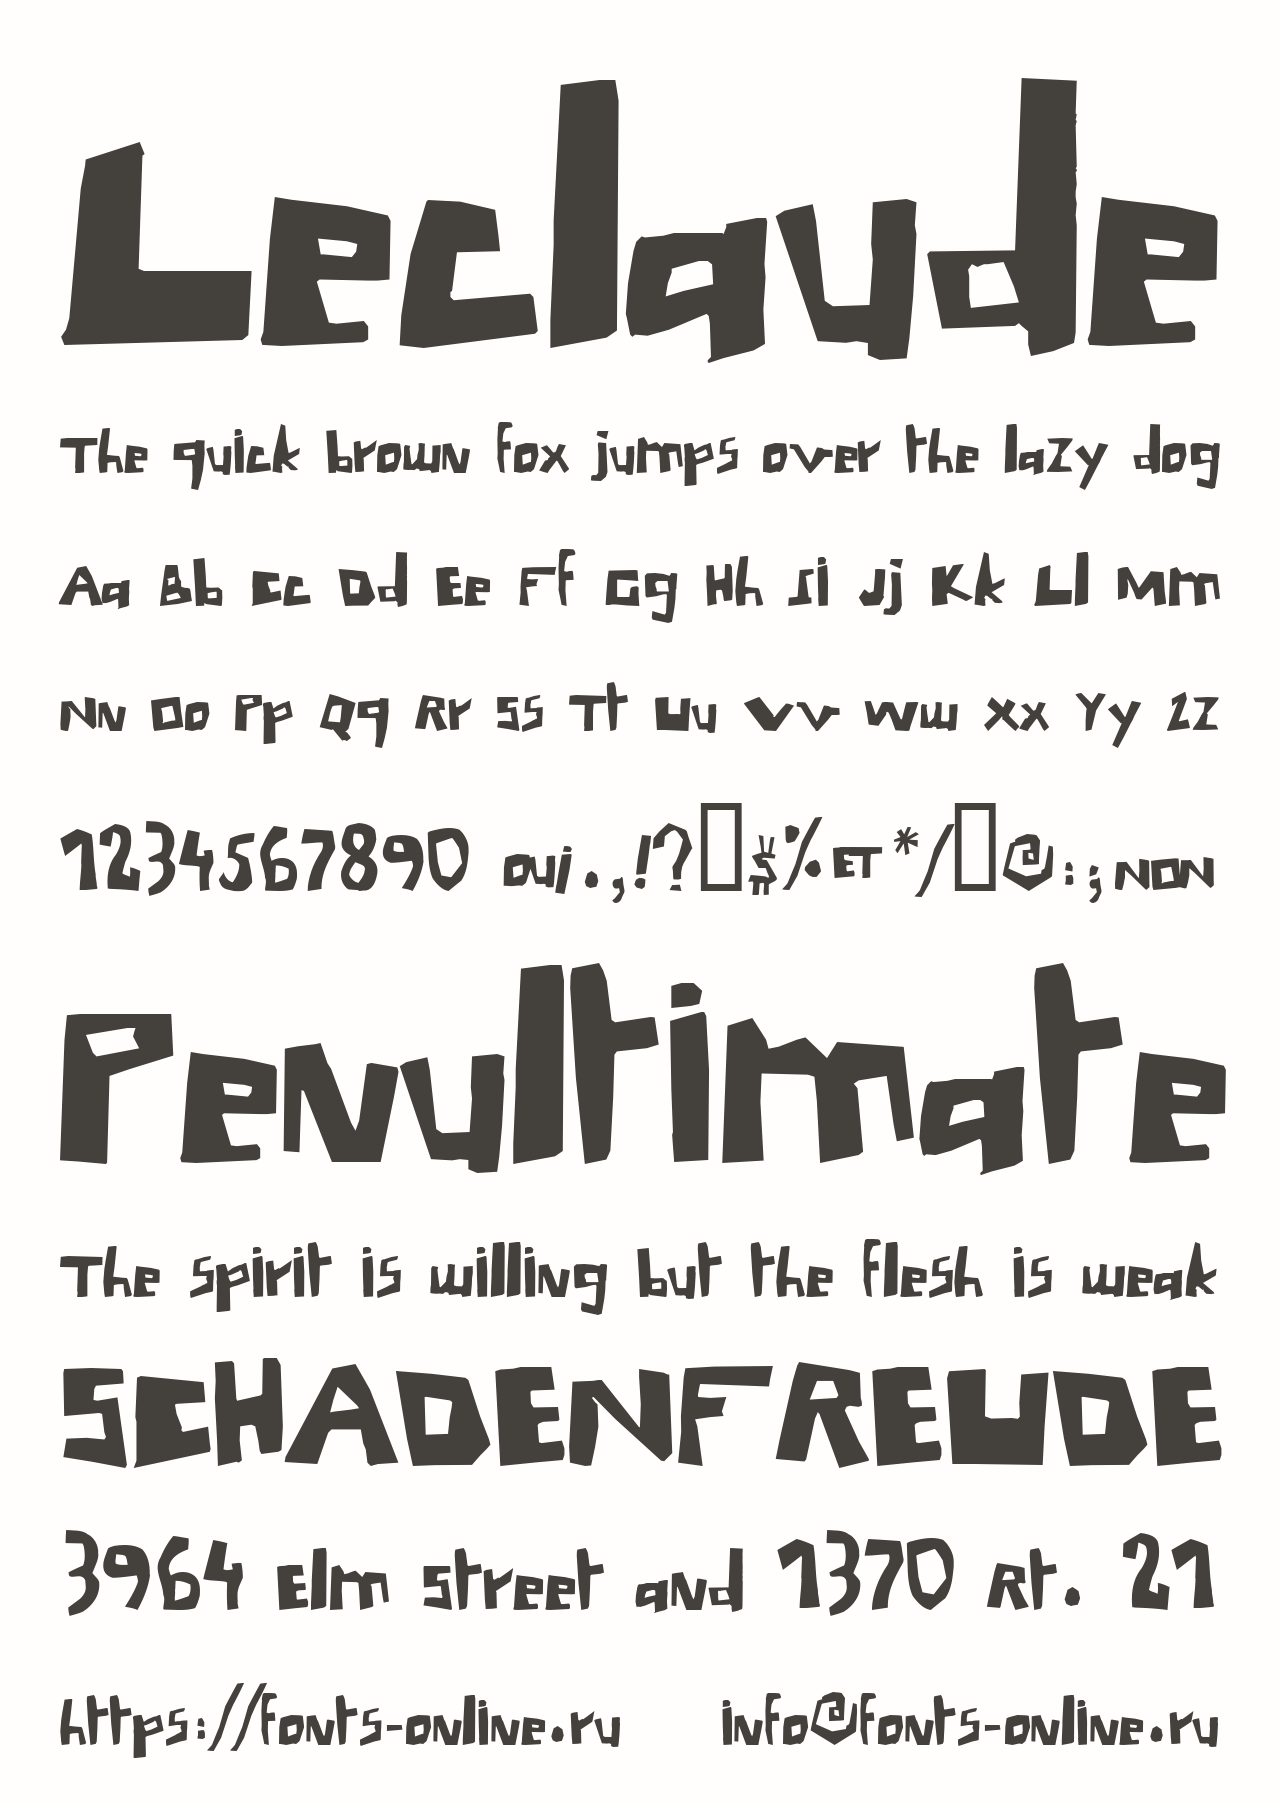 Leclaude
The quick brown fox jumps over the lazy dog
Aa Bb Cc Dd Ee Ff Gg Hh Ii Jj Kk Ll Mm
Nn Oo Pp Qq Rr Ss Tt Uu Vv Ww Xx Yy Zz
1234567890 oui.,!?▯$%ET*/▯@:;NON
Penultimate
The spirit is willing but the flesh is weak
SCHADENFREUDE
3964 Elm street and 1370 Rt. 21
https://fonts-online.ru info@fonts-online.ru